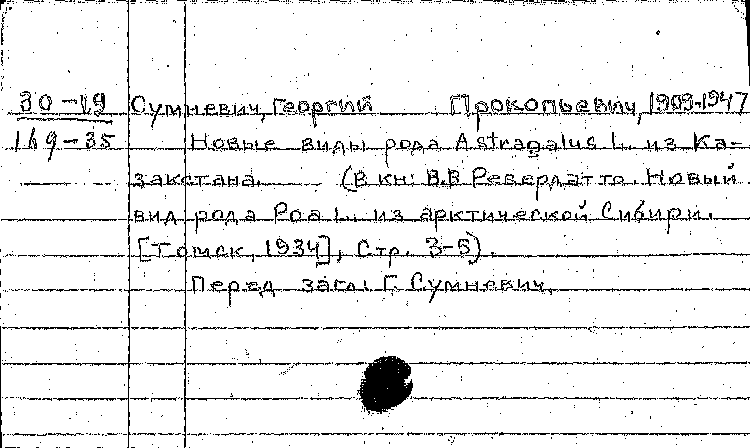 30-19 Сумневич, Георгий Прокопьевич, 1909-1947
169-35 Новые виды рода Astragalus L. из Ка-
закстана. (В кн: В.В Ревердатто. Новый
вид рода Poa L. из арктической Сибири.
[Томск, 1934], Стр. 3-5).
Перед загл: Г. Сумневич.